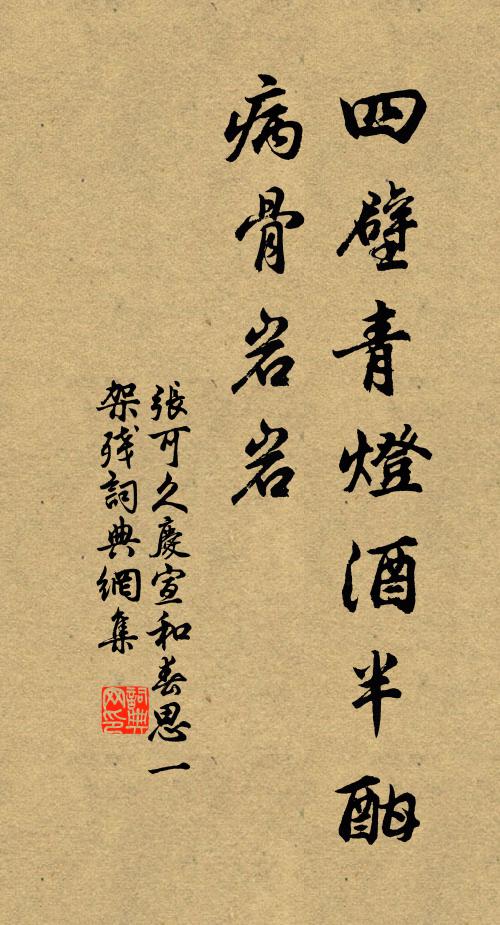 四壁青燈酒半酣
病骨岩岩
張可久慶宣和春思一
架残詞典網集
詞典网印